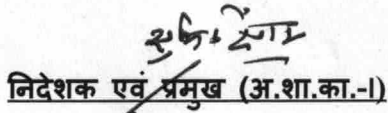 निदेशक एवं प्रमुख (अ.शा.का.-I)